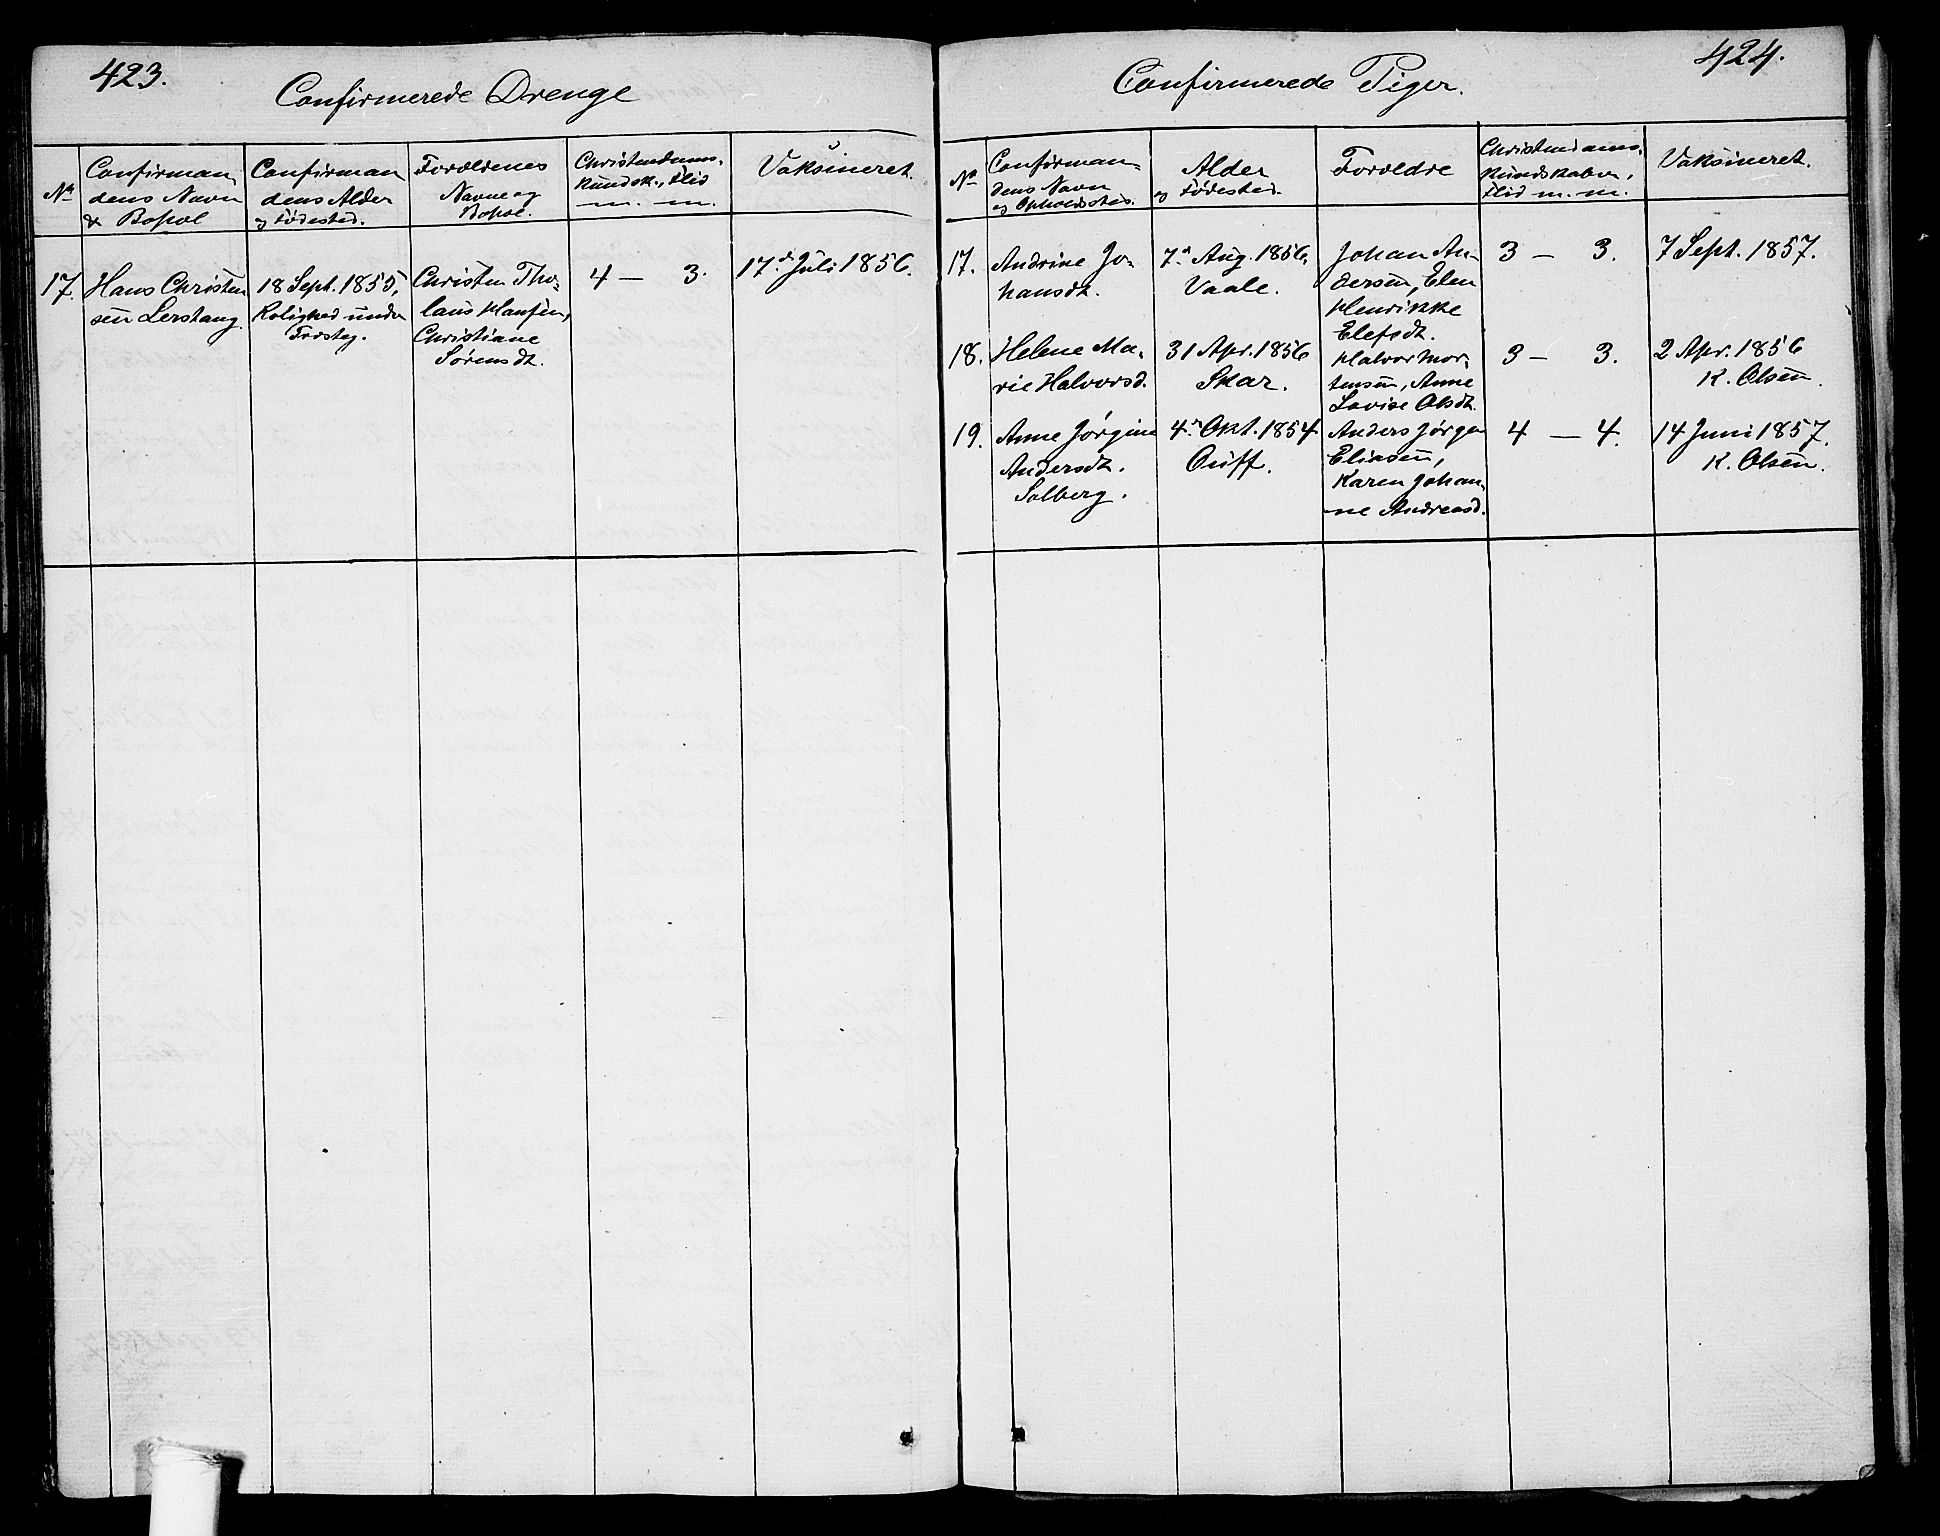 423.
Confirmerede Drenge
No
Confirman-
dens Navn
& Bopæl
Confirman
dens Alder
og Fødested.
Forældrenes
Navne og
Bopæl.
Christendums-
kundsk., Flid
m. m.
Vaksineret.
17.
Hans Christen
sen Lerstang
18 Sept. 1855,
Rolighed under
Tho-
Christen Tho-
laus Hansen,
Christiane
Sørensdt.
4 — 3.
17.d Juli 1856.
424.
Confirmerede Piger.
No
Confirman-
dens Navn
og Opholdssted.
Alder
og Fødested.
Forældre
Christendoms-
kundskaber,
Flid m. m.
Vaksineret.
17.
Andrine Jo-
hansdt.
7de Aug. 1856.
Vaale.
Johan An-
dersen, Elen
Henrikke
Elefsdt.
3 — 3.
7 Sept. 1857.
18.
Helene Ma-
rie Halvorsd.
31 Apr. 1856
Skar.
Halvor Mor-
tensen, Anne
Lovise Olsdt.
3 — 3.
2 Apr. 1856
K. Olsen.
19.
Anne Jørgine
Andersdt.
Solberg.
4de Okt. 1854
Anders Jørgen
Eliasen,
Karen Johan-
ne Andreasd.
4 — 4.
14 Juni 1857.
K. Olsen.